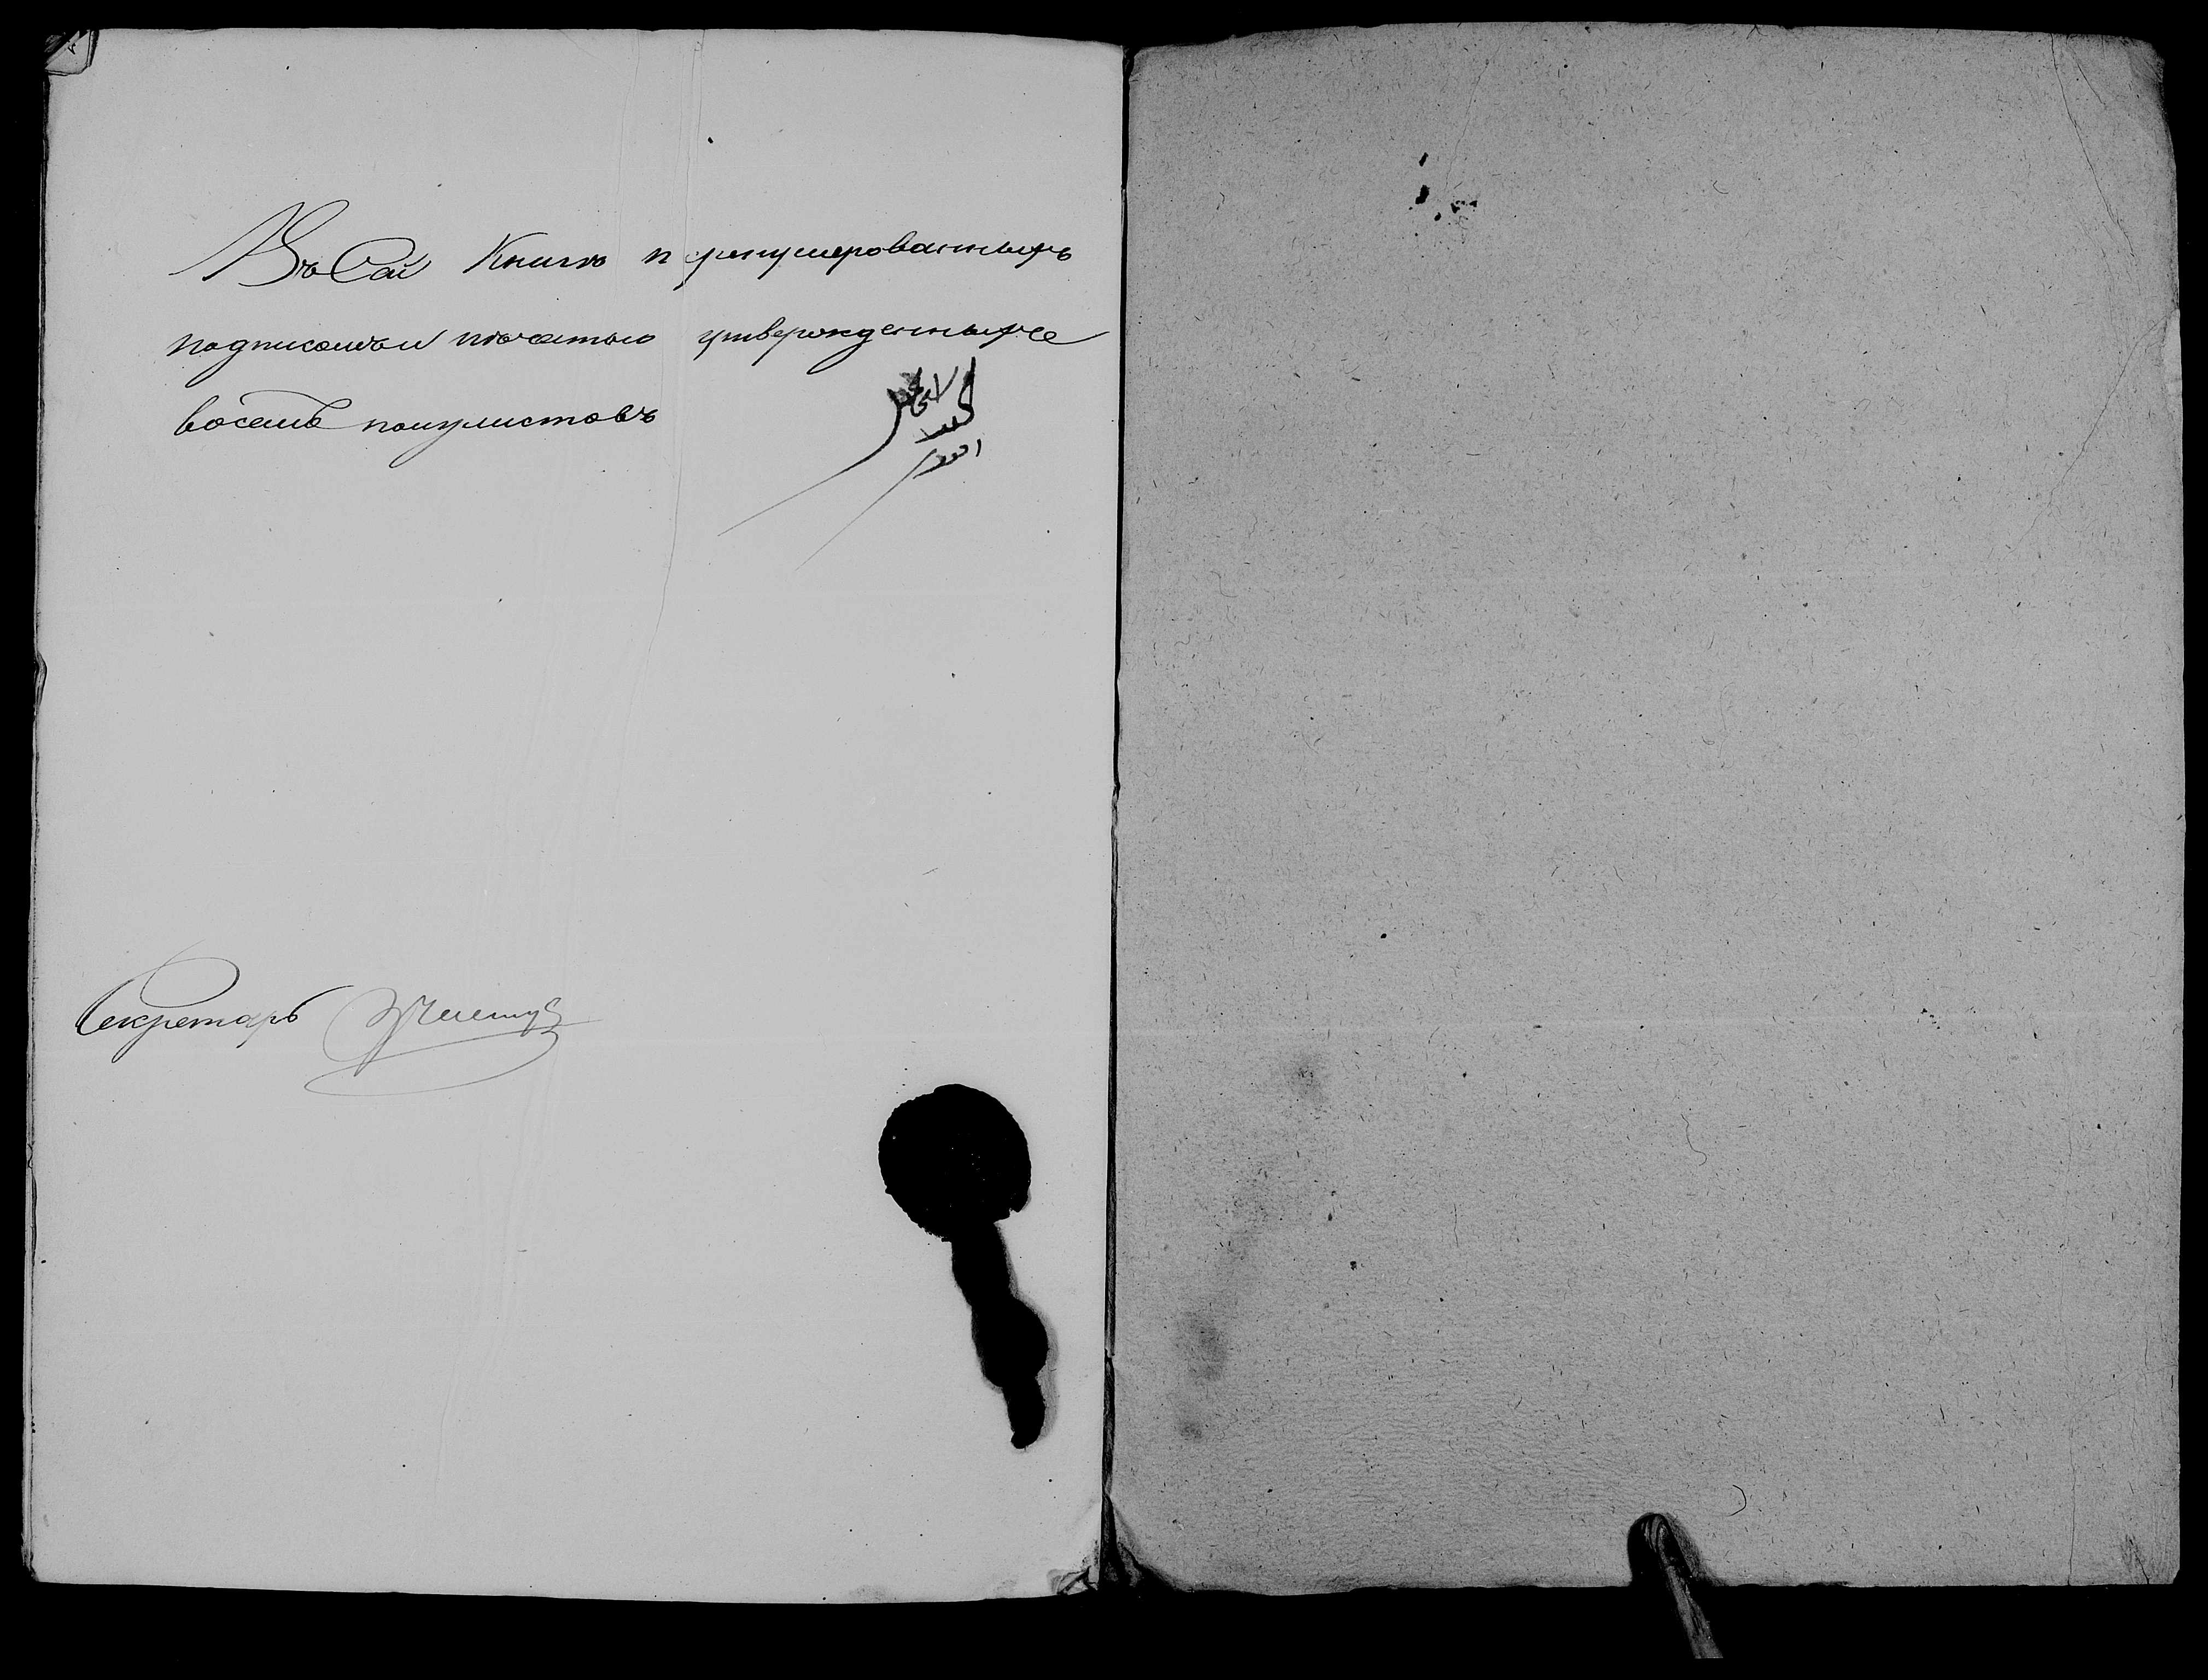 Въ Сей Книге пренумерованныхъ
подписомъ и печатью утвержденныхъ
восемь полулистовъ
Секретарь